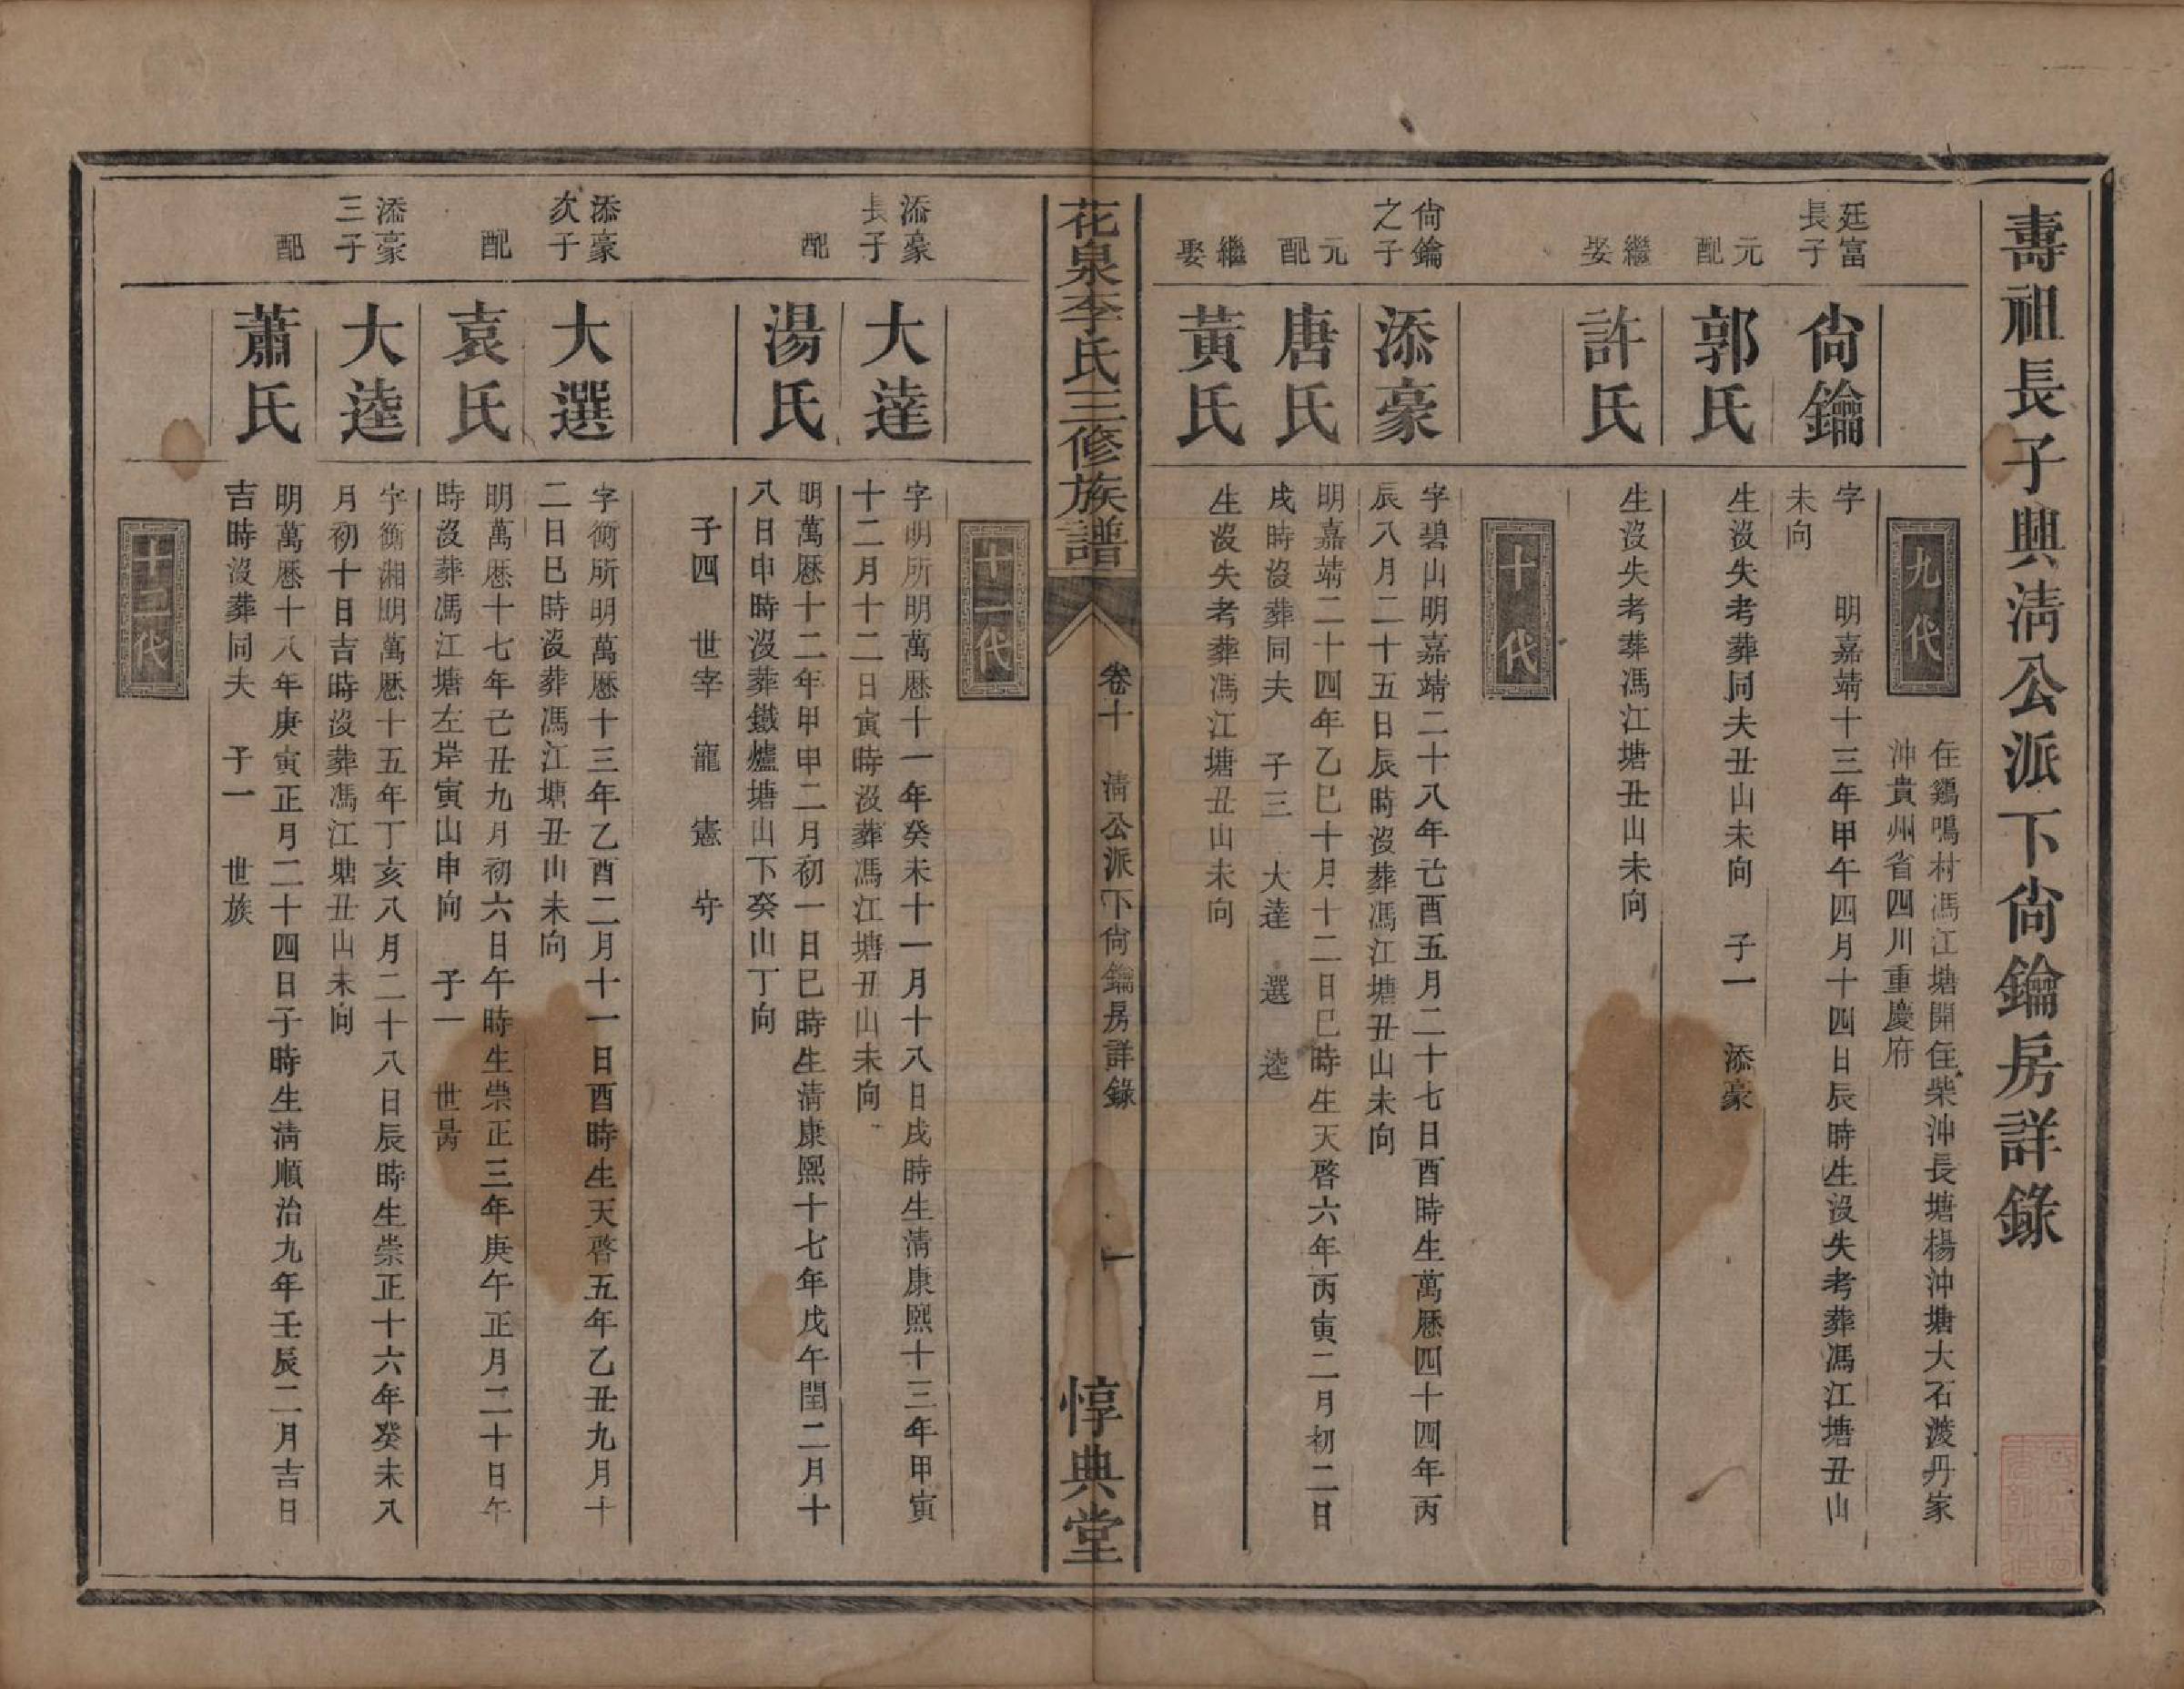 壽祖長子興清公派下尙鑰房詳錄
九代
住鷄鳴村馮江塘開住柴沖長塘楊沖塘大石渡丹家
沖貴州省四川重慶府
廷富
長子
尙鑰
字　明嘉靖十三年甲午四月十四日辰時生沒失考葬馮江塘丑山
未向
元
配
郭氏
生沒失考葬同夫丑山未向　子一　添豪
繼
娶
許氏
生沒失考葬馮江塘丑山未向
十代
尙鑰
之子
添豪
字碧山明嘉靖二十八年己酉五月二十七日酉時生萬曆四十四年丙
辰八月二十五日辰時沒葬馮江塘丑山未向
元
配
唐氏
明嘉靖二十四年乙巳十月十二日巳時生天啓六年丙寅二月初二日
戌時沒葬同夫　子三　大達　選　逵
繼
娶
黃氏
生沒失考葬馮江塘丑山未向
花泉李氏三修族譜
卷十　清公派下尙鑰房詳錄
一
惇典堂
十一代
添豪
長子
大達
字明所明萬曆十一年癸未十一月十八日戌時生清康熙十三年甲寅
十二月十二日寅時沒葬馮江塘丑山未向
配
湯氏
明萬曆十二年甲申二月初一日巳時生清康熙十七年戊午閏二月十
八日申時沒葬鐵爐塘山下癸山丁向
子四　世宰　寵　憲　守
添豪
次子
大選
字衡所明萬曆十三年乙酉二月十一日酉時生天啓五年乙丑九月十
二日巳時沒葬馮江塘丑山未向
配
袁氏
明萬曆十七年己丑九月初六日午時生崇正三年庚午正月二十日午
時沒葬馮江塘左岸寅山申向　子一　世勗
添豪
三子
大逵
字衡湘明萬曆十五年丁亥八月二十八日辰時生崇正十六年癸未八
月初十日吉時沒葬馮江塘丑山未向
配
蕭氏
明萬曆十八年庚寅正月二十四日子時生清順治九年壬辰二月吉日
吉時沒葬同夫　子一　世族
十二代